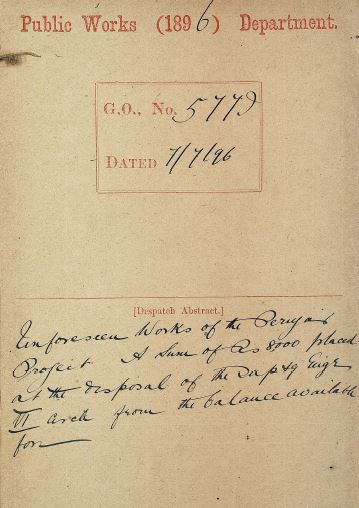 Public Works (1896) Department.
G.O., No. 5779
DATED 7/7/96
[Despatch Abstract.]
Unforeseen Works of the Periyar
Project A Sum of Rs 8000 placed
at the disposal of the Engr
VI from the balance available
for